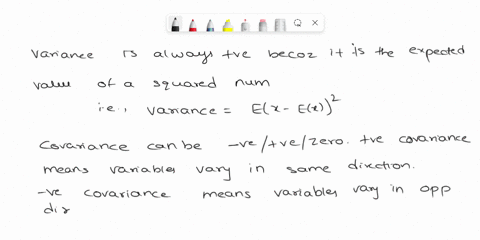 Variance is always +ve becoz it is the expected
value of a squared num
i.e., variance = E(x - E(x))²
Covariance can be -ve/+ve/zero. +ve covariance
means variables vary in same direction.
-ve covariance means variables vary in opp
dir